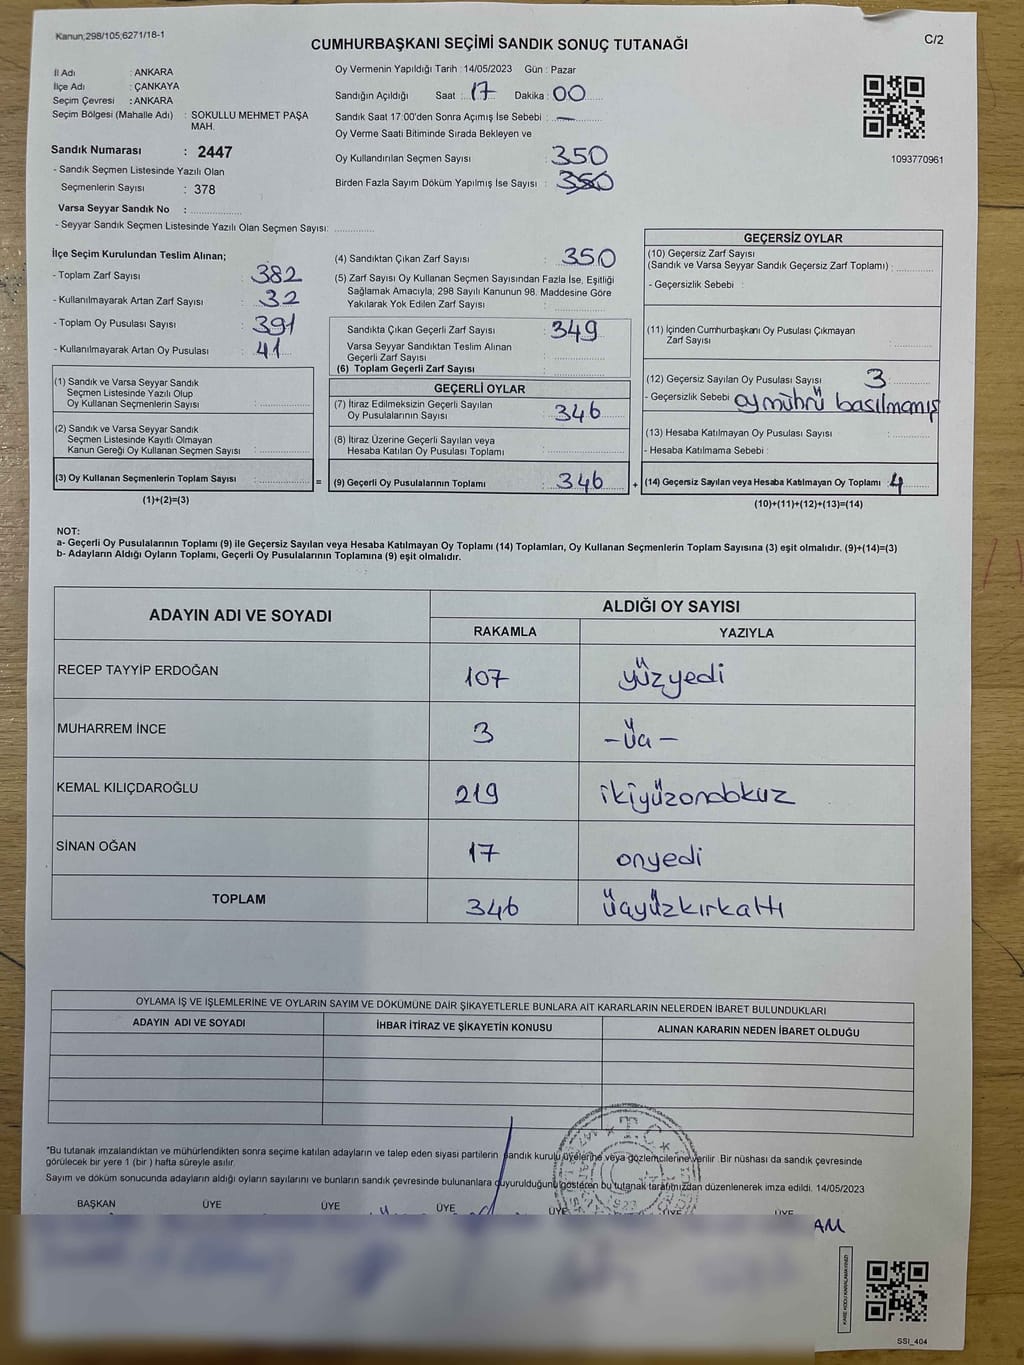 Kanun;298/105;6271/18-1
C/2
CUMHURBAŞKANI SEÇİMİ SANDIK SONUÇ TUTANAĞI
İl Adı : ANKARA
İlçe Adı : ÇANKAYA
Seçim Çevresi : ANKARA
Seçim Bölgesi (Mahalle Adı) : SOKULLU MEHMET PAŞA MAH.
Sandık Numarası : 2447
- Sandık Seçmen Listesinde Yazılı Olan
Seçmenlerin Sayısı : 378
Varsa Seyyar Sandık No :
- Seyyar Sandık Seçmen Listesinde Yazılı Olan Seçmen Sayısı:
Oy Vermenin Yapıldığı Tarih : 14/05/2023 Gün : Pazar
Sandığın Açıldığı Saat : 17 Dakika : 00
Sandık Saat 17:00'den Sonra Açımış İse Sebebi : —
Oy Verme Saati Bitiminde Sırada Bekleyen ve
Oy Kullandırılan Seçmen Sayısı : 350
Birden Fazla Sayım Döküm Yapılmış İse Sayısı : 350
1093770961
İlçe Seçim Kurulundan Teslim Alınan;
- Toplam Zarf Sayısı : 382
- Kullanılmayarak Artan Zarf Sayısı : 32
- Toplam Oy Pusulası Sayısı : 391
- Kullanılmayarak Artan Oy Pusulası : 41
(1) Sandık ve Varsa Seyyar Sandık
Seçmen Listesinde Yazılı Olup
Oy Kullanan Seçmenlerin Sayısı :
(2) Sandık ve Varsa Seyyar Sandık
Seçmen Listesinde Kayıtlı Olmayan
Kanun Gereği Oy Kullanan Seçmen Sayısı :
(3) Oy Kullanan Seçmenlerin Toplam Sayısı : =
(1)+(2)=(3)
(4) Sandıktan Çıkan Zarf Sayısı : 350
(5) Zarf Sayısı Oy Kullanan Seçmen Sayısından Fazla İse, Eşitliği
Sağlamak Amacıyla, 298 Sayılı Kanunun 98. Maddesine Göre
Yakılarak Yok Edilen Zarf Sayısı :
Sandıkta Çıkan Geçerli Zarf Sayısı : 349
Varsa Seyyar Sandıktan Teslim Alınan
Geçerli Zarf Sayısı :
(6) Toplam Geçerli Zarf Sayısı :
GEÇERLİ OYLAR
(7) İtiraz Edilmeksizin Geçerli Sayılan
Oy Pusulalarının Sayısı : 346
(8) İtiraz Üzerine Geçerli Sayılan veya
Hesaba Katılan Oy Pusulası Toplamı :
(9) Geçerli Oy Pusulalarının Toplamı : 346 +
GEÇERSİZ OYLAR
(10) Geçersiz Zarf Sayısı
(Sandık ve Varsa Seyyar Sandık Geçersiz Zarf Toplamı) :
- Geçersizlik Sebebi :
(11) İçinden Cumhurbaşkanı Oy Pusulası Çıkmayan
Zarf Sayısı :
(12) Geçersiz Sayılan Oy Pusulası Sayısı : 3
- Geçersizlik Sebebi : oy mührü basılmamış
(13) Hesaba Katılmayan Oy Pusulası Sayısı :
- Hesaba Katılmama Sebebi :
(14) Geçersiz Sayılan veya Hesaba Katılmayan Oy Toplamı : 4
(10)+(11)+(12)+(13)=(14)
NOT:
a- Geçerli Oy Pusulalarının Toplamı (9) ile Geçersiz Sayılan veya Hesaba Katılmayan Oy Toplamı (14) Toplamları, Oy Kullanan Seçmenlerin Toplam Sayısına (3) eşit olmalıdır. (9)+(14)=(3)
b- Adayların Aldığı Oyların Toplamı, Geçerli Oy Pusulalarının Toplamına (9) eşit olmalıdır.
ADAYIN ADI VE SOYADI
ALDIĞI OY SAYISI
RAKAMLA YAZIYLA
RECEP TAYYİP ERDOĞAN 107 yüzyedi
MUHARREM İNCE 3 - üç -
KEMAL KILIÇDAROĞLU 219 ikiyüzondokuz
SİNAN OĞAN 17 onyedi
TOPLAM 346 üçyüzkırkaltı
OYLAMA İŞ VE İŞLEMLERİNE VE OYLARIN SAYIM VE DÖKÜMÜNE DAİR ŞİKAYETLERLE BUNLARA AİT KARARLARIN NELERDEN İBARET BULUNDUKLARI
ADAYIN ADI VE SOYADI İHBAR İTİRAZ VE ŞİKAYETİN KONUSU ALINAN KARARIN NEDEN İBARET OLDUĞU
*Bu tutanak imzalandıktan ve mühürlendikten sonra seçime katılan adayların ve talep eden siyasi partilerin sandık kurulu üyelerine veya gözlemcilerine verilir Bir nüshası da sandık çevresinde
görülecek bir yere 1 (bir ) hafta süreyle asılır.
Sayım ve döküm sonucunda adayların aldığı oyların sayılarını ve bunların sandık çevresinde bulunanlara duyurulduğunu gösteren bu tutanak tarafımızdan düzenlenerek imza edildi. 14/05/2023
BAŞKAN ÜYE ÜYE ÜYE ÜYE ÜYE ÜYE
T.C.
SSI_404